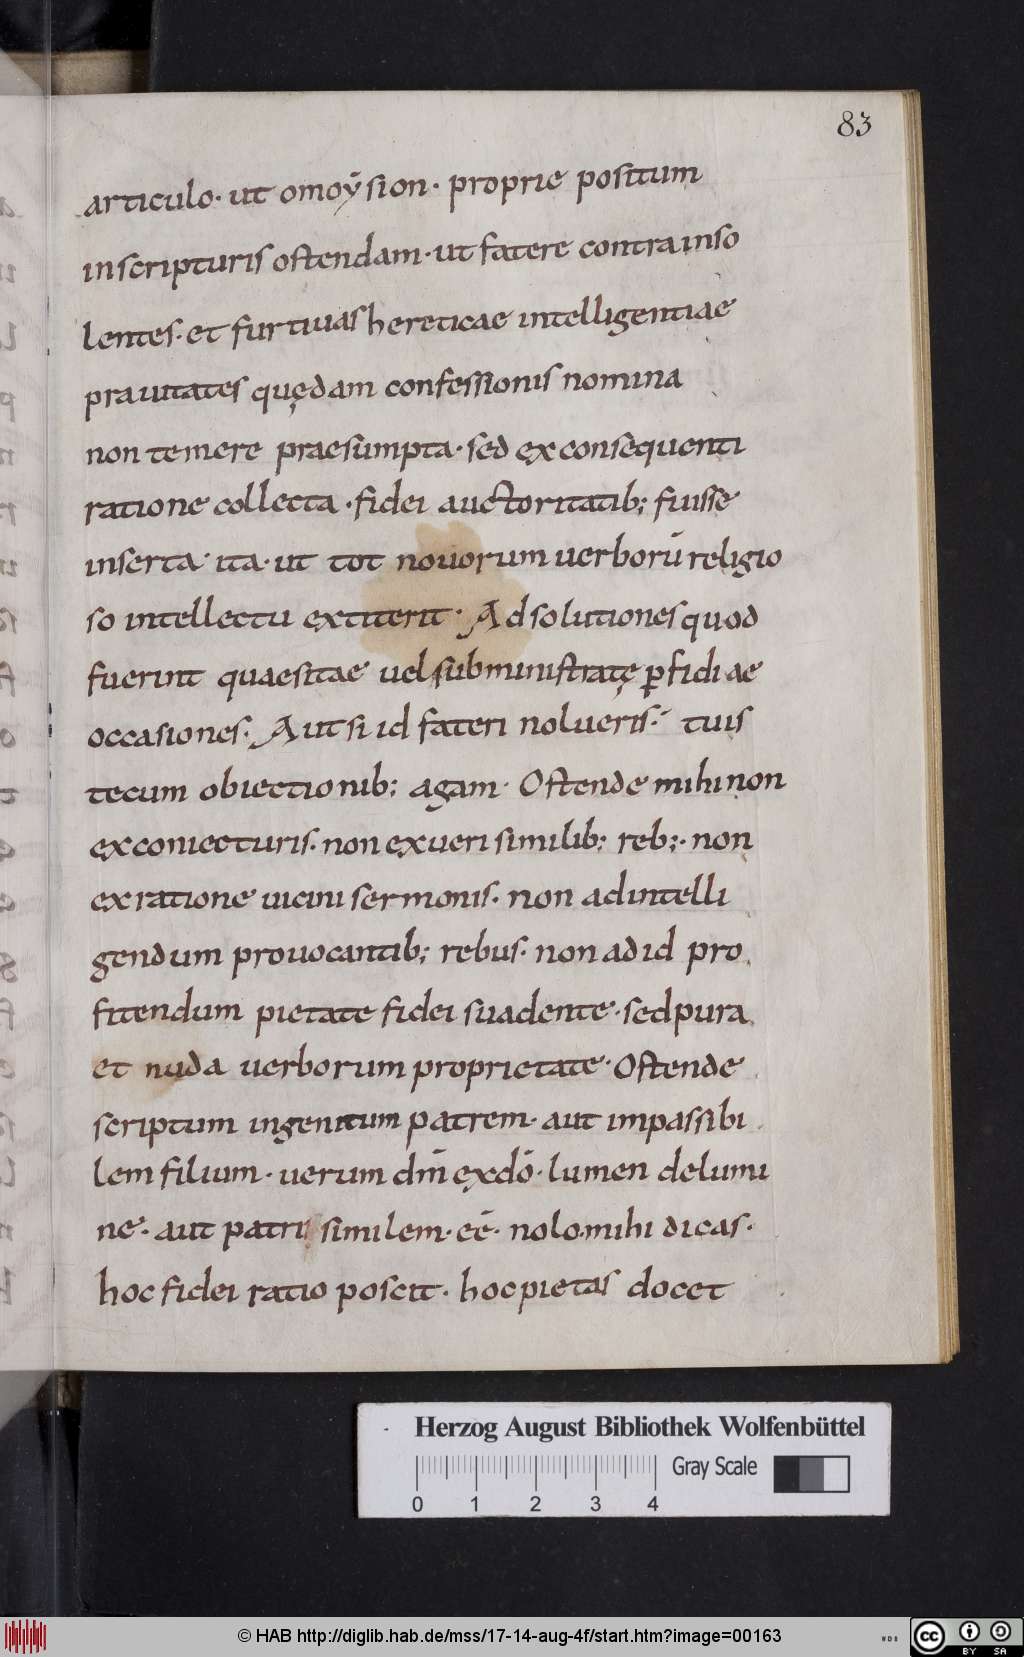 83
articulo· ut omoẏsion· proprie positum
inscripturis ostendam· ut fatere contrainso
lentes· et furtiuas hereticae intelligentiae
prauitates quędam confessionis nomina
non temere praesumpta· sed ex consequenti
ratione collecta· fidei auctoritatib; fuisse
inserta· ita· ut tot nouorum uerborū religio
so intellectu extiterit· Adsolutiones quod
fuerint quaesitae uel subministratę ꝑfidiae
occasiones· Aut si id fateri nolueris· tuis
tecum obiectionib; agam· Ostende mihi non
exconiecturis· non exuerisimilib; reb;· non
exratione uicini sermonis· non adintelli
gendum prouocantib; rebus· non adid pro
fitendum pietate fidei suadente· sedpura
et nuda uerborum proprietate· Ostende
scriptum ingenitum patrem· aut impassibi
lem filium· uerum dm̄ exdō· lumen delumi
ne· aut patri similem· eē· nolo mihi dicas·
hoc fidei ratio poscit· hocpietas docet
Herzog August Bibliothek Wolfenbüttel
Gray Scale
0 1 2 3 4
© HAB http://diglib.hab.de/mss/17-14-aug-4f/start.htm?image=00163
WDB
cc BY SA